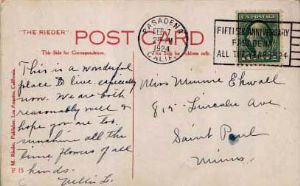 "THE RIEDER"
POST CARD
This Side for Correspondence.
This Side for Address only.
M. Rieder, Publisher, Los Angeles, California.
PASADENA
FEB 7
1924
CALIF.
FIFTIETH ANNIVERSARY
PASADENA
ALL THE 1924
This is a wonderful
place to live especially
now. We are both
reasonably well &
hope you are too.
sunshine all the
time flowers of all
kinds.
Nettie L.
Miss Minnie
815 Lincoln Ave
Saint Paul
Minn.